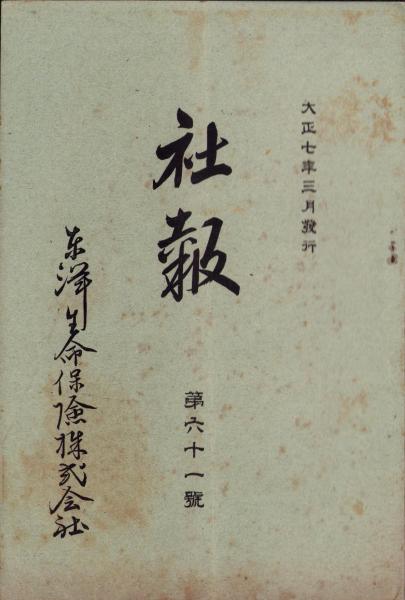 大正七年三月發行
社報
第六十一號
东洋生命保險株式会社